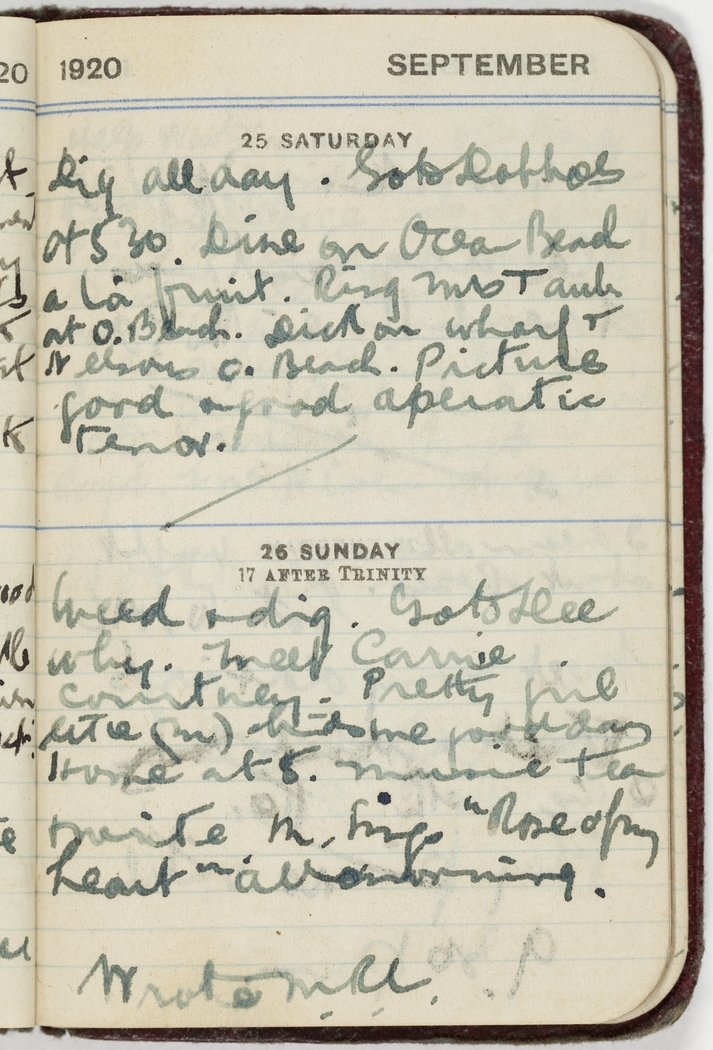 20
1920 SEPTEMBER
25 SATURDAY
Dig all day. Go to
at 5 30. Dine on Ocean Beach
a la fruit. Ring Mrs Taub
at O. Beach. Dick on wharf &
Nelsons O. Beach. Picture
good & good operatic
tenor.
26 SUNDAY
17 AFTER TRINITY
Weed & dig. Go to Dee
why. Meet Carrie
Courtney. Pretty girl
(m) bids me good day
Home at 8. music tea
write M. Sings "Rose of my
heart" all morning.
Wrote